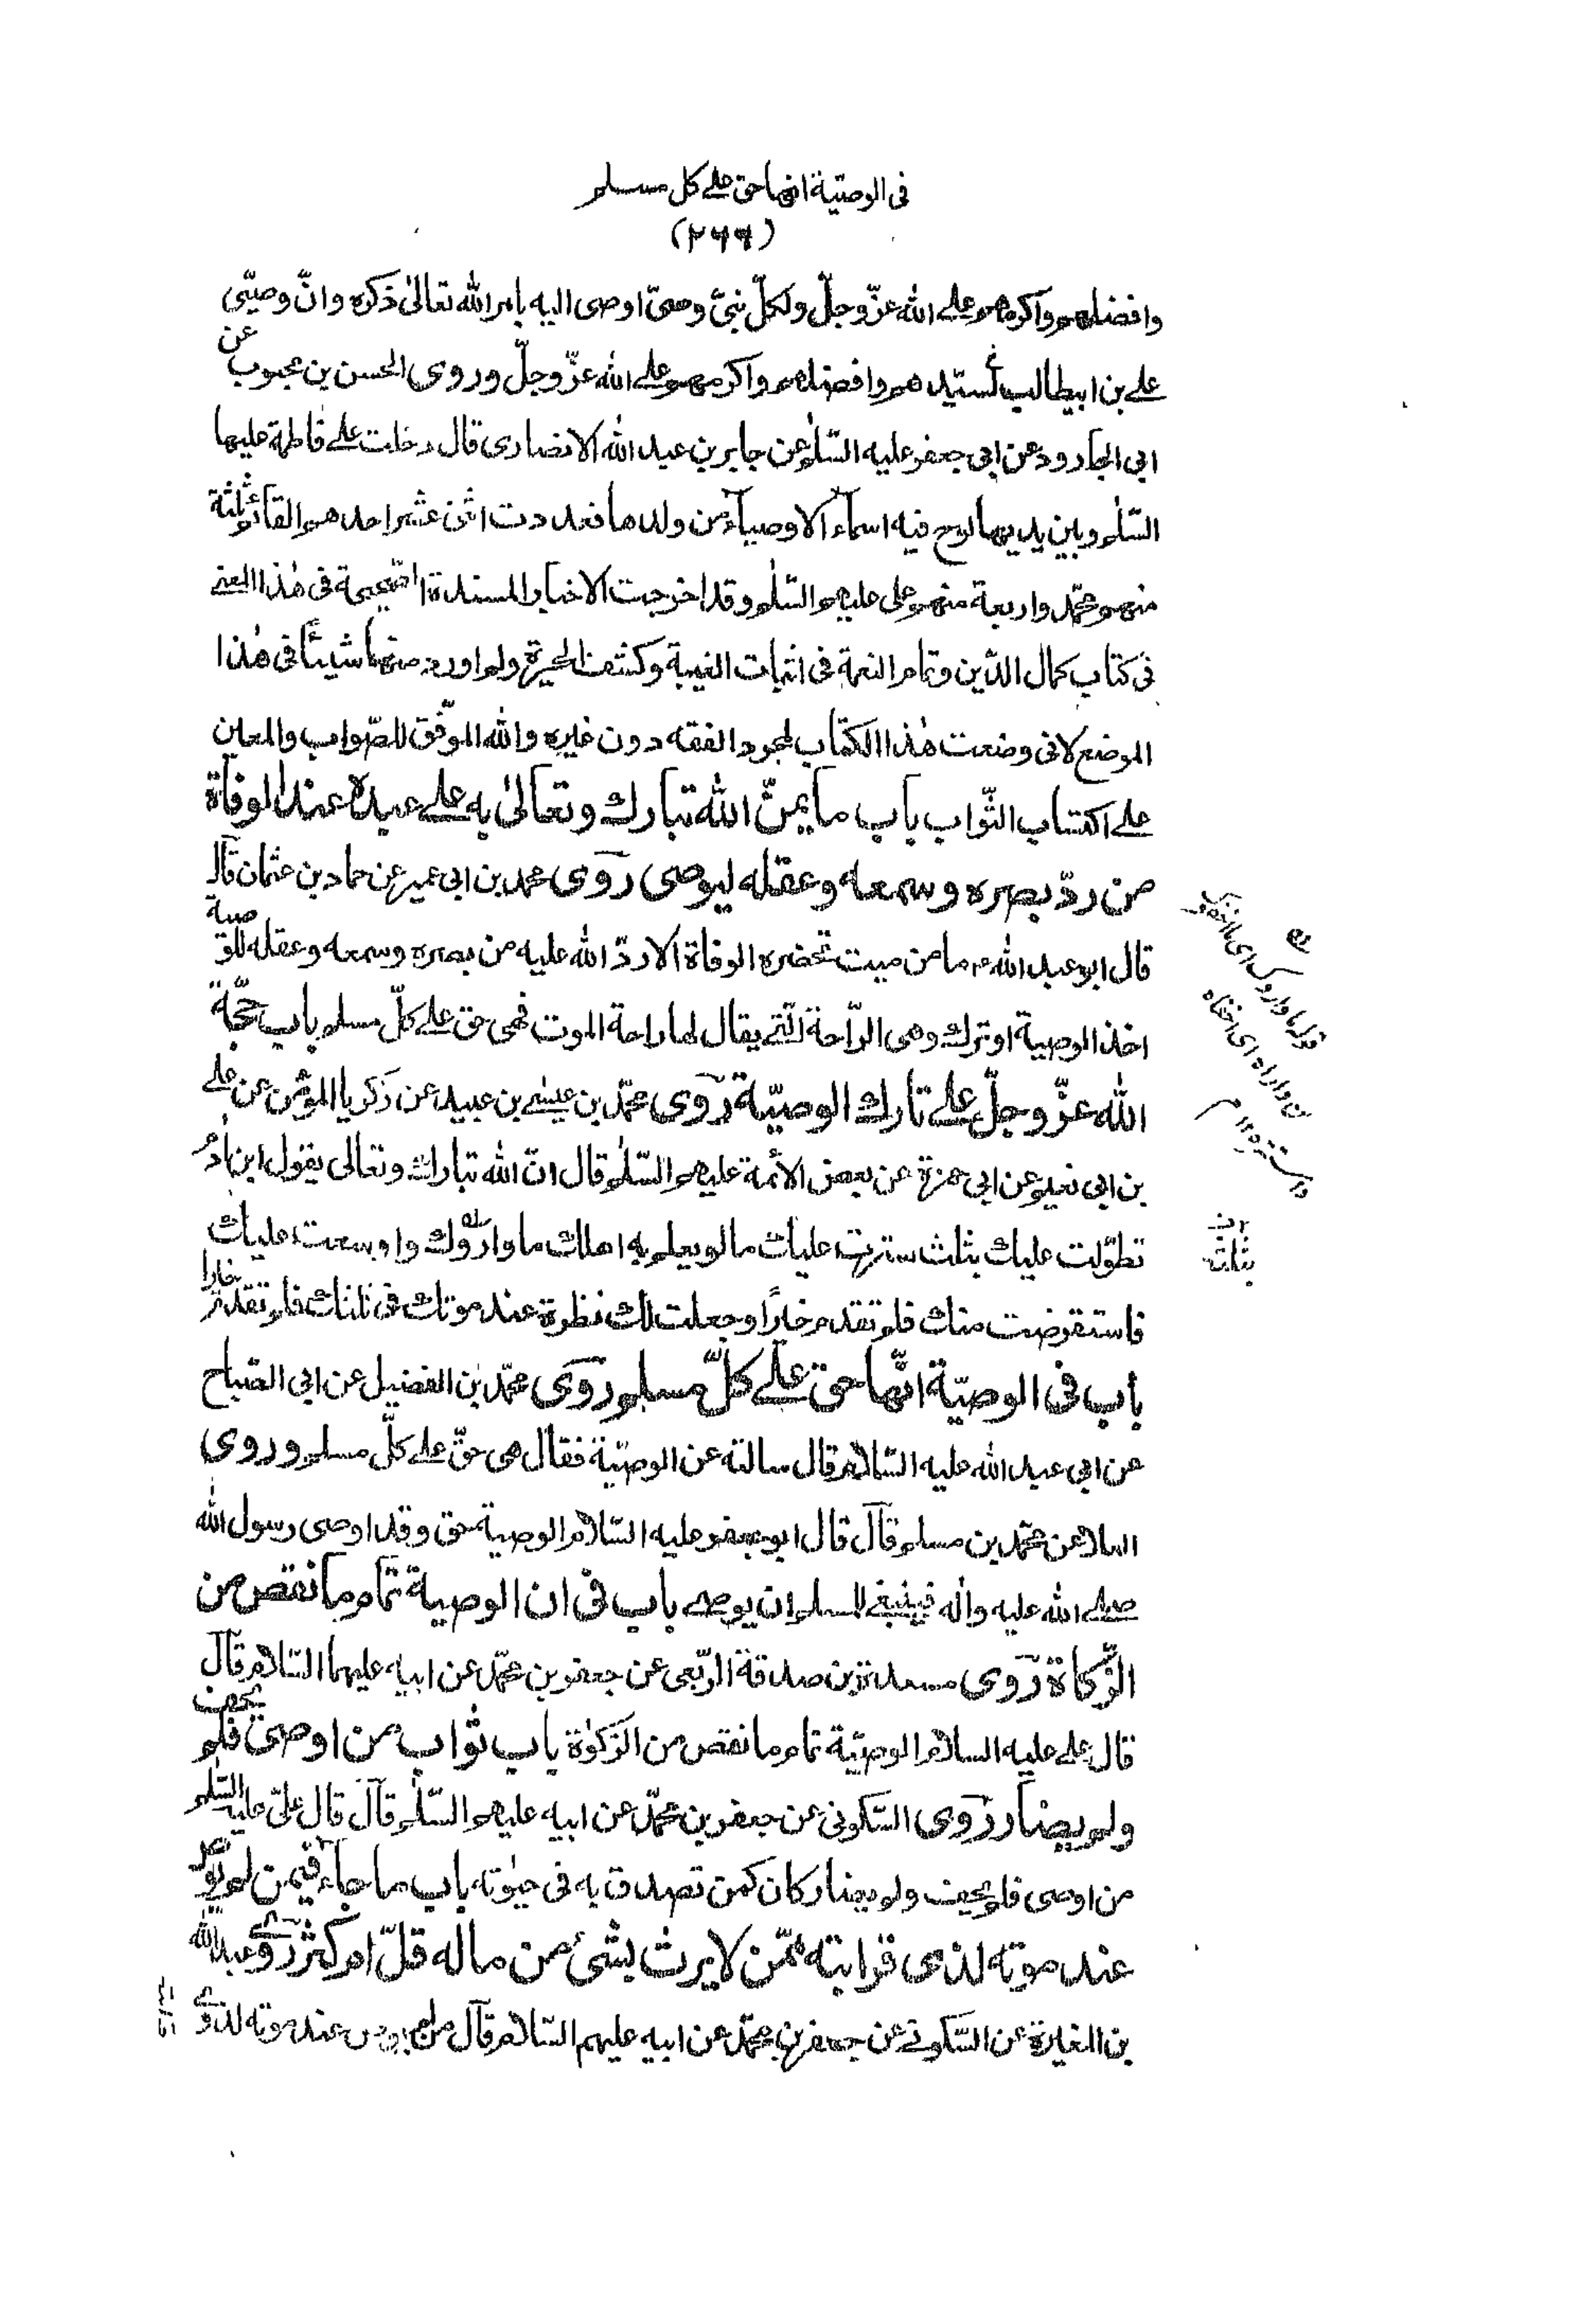 فى الوصيّة انها حق على كل مسلم
(٢٦٦)
وافضلهم واكرمهم على الله عزّ وجلّ ولكلّ نبىّ وصىّ اوصى اليه بامر الله تعالىٰ ذكره وانّ وصيّى
على بن ابيطالب لسيّدهم وافضلهم واكرمهم على الله عزّ وجلّ وروى الحسن بن محبوب عن
ابى الجارود عن ابى جعفر عليه السّلٰم عن جابر بن عبد الله الانصارى قال دخلت على فاطمة عليها
السّلٰم وبين يديها لوح فيه اسماء الاوصياء من ولدها فعددت اثنى عشر احدهم القائم ثلٰثة
منهم محمّد واربعة منهم على عليهم السّلٰم وقد اخرجت الاخبار المسندة الصّحيحة فى هٰذا المعنى
فى كتاب كمال الدّين وتمام النعمة فى اثبات الغيبة وكشف الحيرة ولم اورد منها شيئًا فى هٰذا
الموضع لانى وضعت هٰذا الكتاب لمجرد الفقه دون غيره والله الموفّق للصّواب والمعين
على اكتساب الثّواب باب ما يمنّ الله تبارك وتعالىٰ به على عبده عند الوفاة
من ردّ بصره وسمعه وعقله ليوصى روى محمد بن ابى عمير عن حماد بن عثمان قال
قال ابو عبد الله ع ما من ميت تحضره الوفاة الا ردّ الله عليه من بصره وسمعه وعقله للوصية
اخذ الوصية او ترك وهى الرّاحة الّتى يقال لها راحة الموت فهى حق على كلّ مسلم باب حجّة
الله عزّ وجلّ على تارك الوصيّة روى محمّد بن عيسى بن عبيد عن زكريا المؤمن عن على
بن ابى نعيم عن ابى حمزة عن بعض الأئمة عليهم السّلٰم قال انّ الله تبارك وتعالى يقول ابن اٰدم
تطوّلت عليك بثلث سترت عليك ما لو يعلم به اهلك ما واروك واوسعت عليك
فاستقرضت منك فلم تقدم خيرًا وجعلت لك نظرة عند موتك فى ثلثك فلم تقدم خيرا
باب فى الوصيّة انّها حق على كلّ مسلم روى محمّد بن الفضيل عن ابى الصّباح
عن ابى عبد الله عليه السّلام قال سالته عن الوصيّة فقال هى حقّ على كلّ مسلم وروى
العلا عن محمّد بن مسلم قال قال ابو جعفر عليه السّلام الوصية حق وقد اوصى رسول الله
صلى الله عليه واٰله فينبغى للمسلم ان يوصى باب فى ان الوصية تمام ما نقص من
الزّكاة روى مسعدة بن صدقة الرّبعى عن جعفر بن محمّد عن ابيه عليهما السّلام قال
قال على عليه السلام الوصيّة تمام ما نقص من الزّكوٰة باب ثواب من اوصى فلم يحف
ولم يضار روى السّكونى عن جعفر بن محمّد عن ابيه عليهم السّلٰم قال قال علىّ عليه السّلٰم
من اوصى فلم يحف ولم يضار كان كمن تصدق به فى حيٰوته باب ما جاء فيمن لم يوص
عند موته لذى قرابته ممّن لا يرث بشئ من ماله قلّ او كثر روى عبد الله
بن المغيرة عن السّكونى عن جعفر بن محمّد عن ابيه عليهم السّلام قال من لم يوص عند موته لذوى
قوله ما واروك اى ما اخفوك